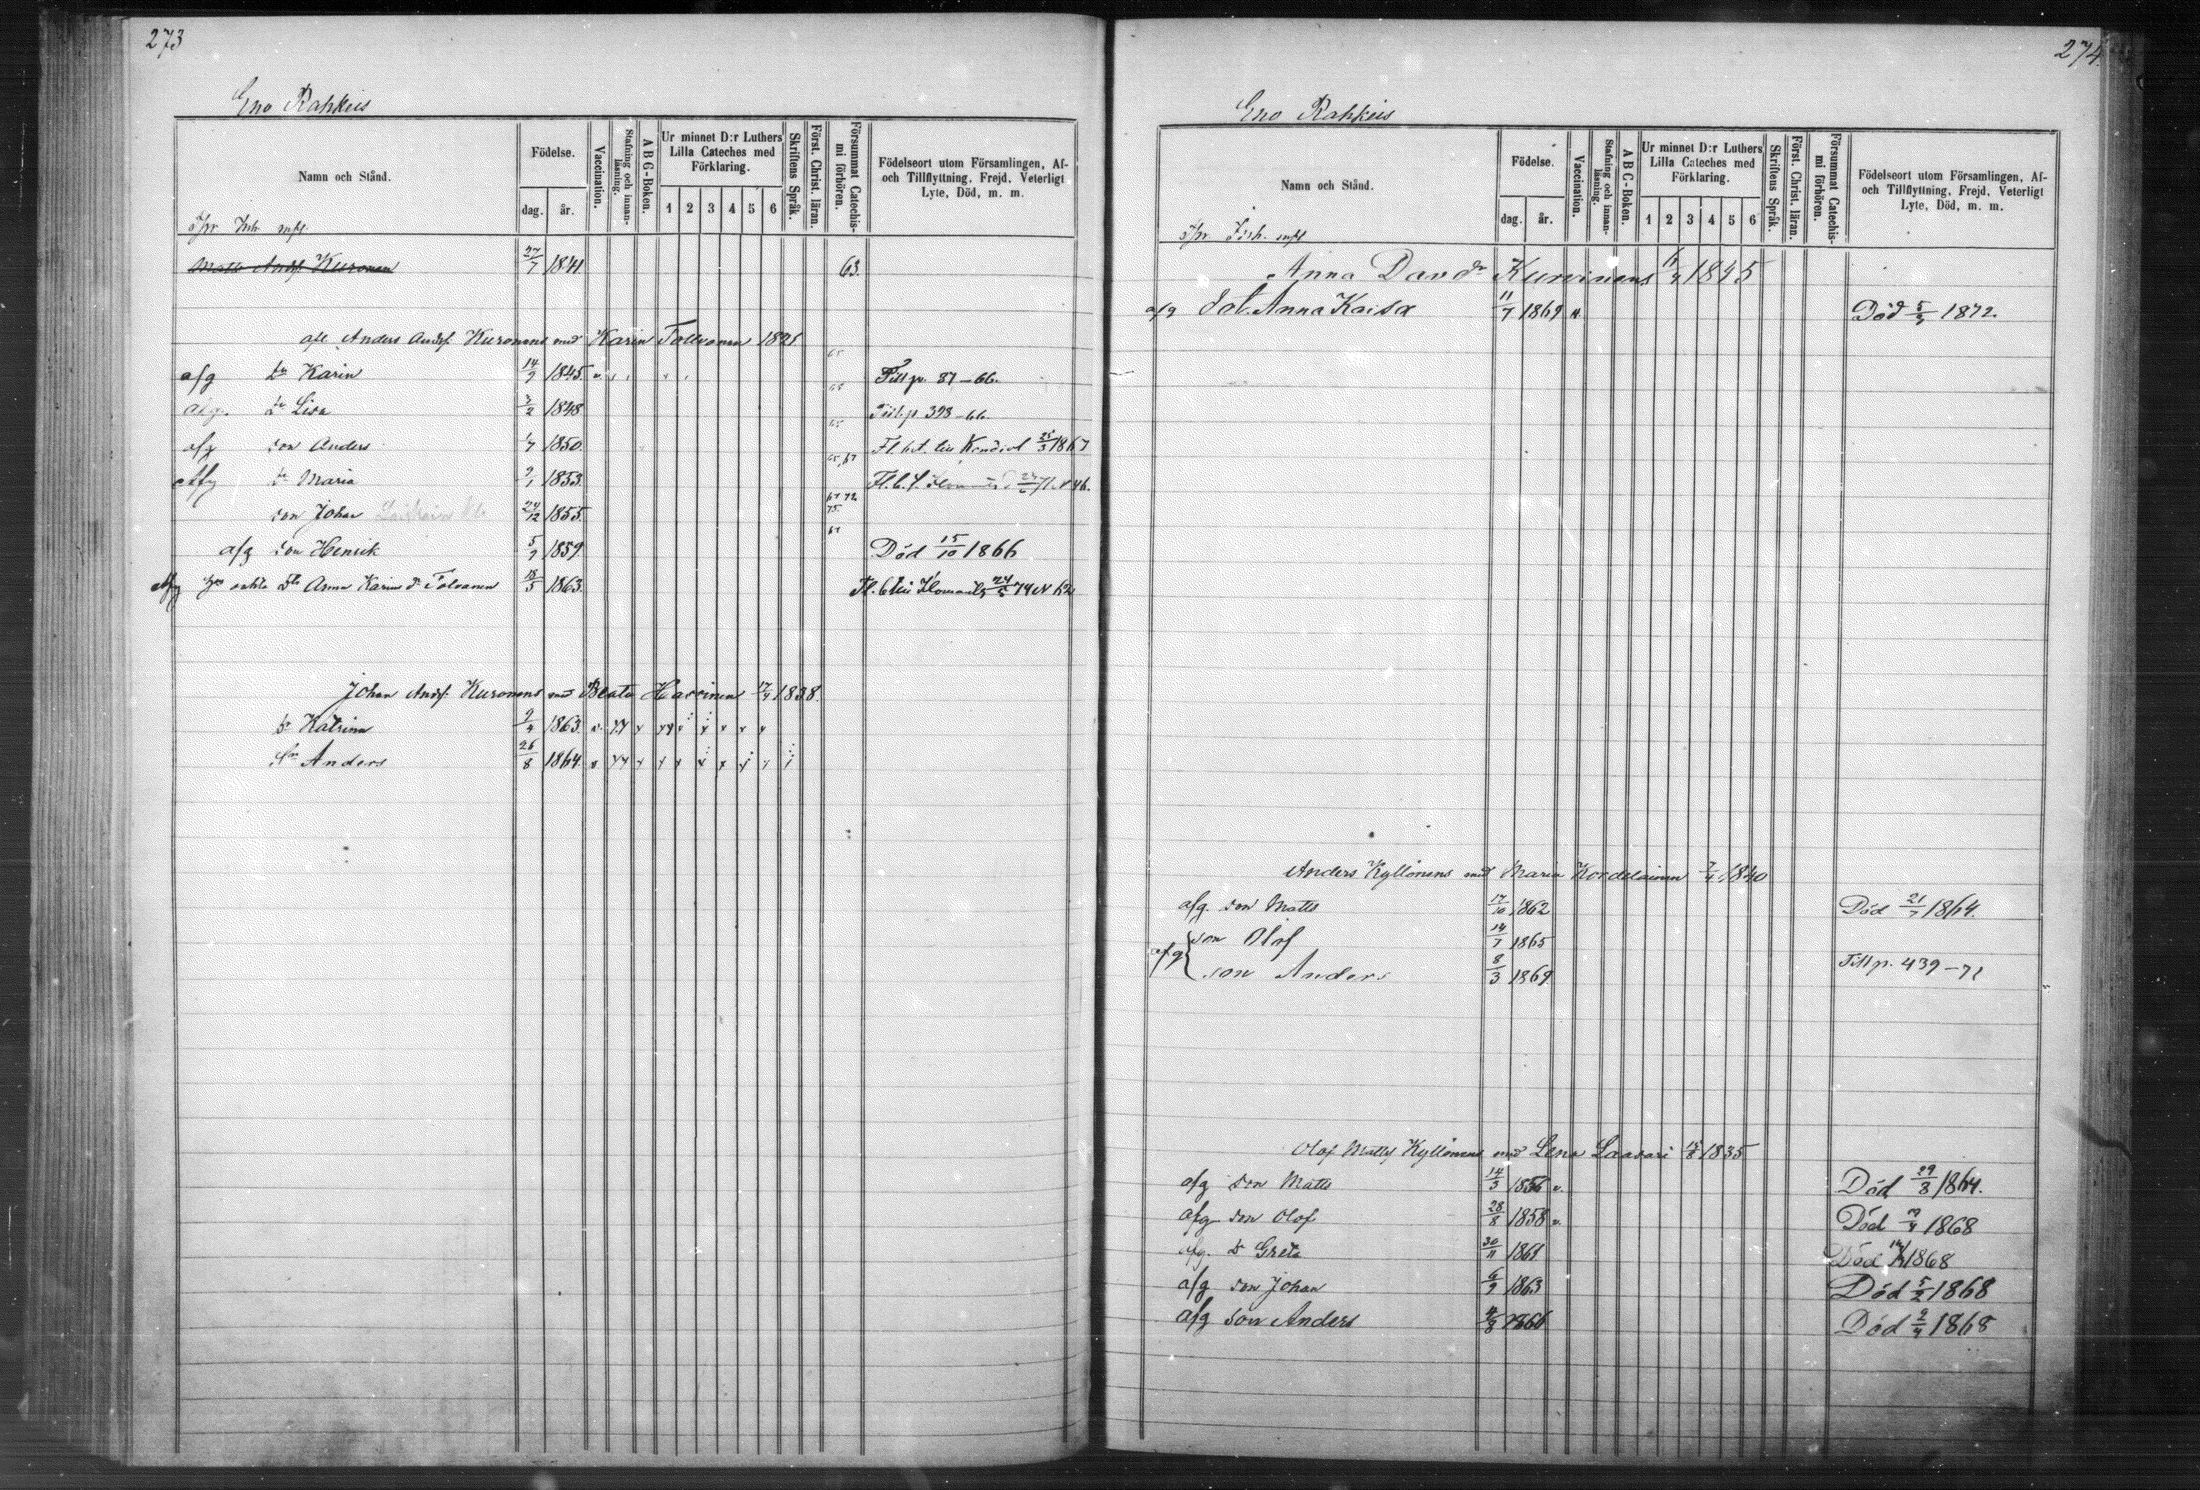 273
Eno Rahkeis
Namn och Stånd.
Födelse.
dag.
år.
Vaccination.
Stafning och innan-läsning.
A B C-Boken.
Ur minnet D:r Luthers Lilla Cateches med Förklaring.
1 2 3 4 5 6
Skriftens Språk.
Först. Christ. läran.
Försummat Catechis-mi förhören.
Födelseort utom Församlingen, Af- och Tillflyttning, Frejd, Veterligt Lyte, Död, m. m.
Matts Andsf. Kuronen 27/7 1841 63.
afl. Anders Andsf. Kuronens med Karin Tolvanen 1821
afg dr Karin 14/9 1845. v. Till p. 87-66.
afg. dr Lisa 3/2 1848 Till p 398-66.
afg son Anders 1/7 1850. 65,67
afg dr Maria 9/1 1853.
son Johan 24/12 1855.
afg son Henrik 5/9 1859 Död 15/10 1866
afg dr Anna Karin dr Tolvanen 18/5 1863.
Johan Andsf. Kuronens med Beata Harinen 17/4 1838.
dr Katrina 9/4 1863. v.
Sn Anders 26/8 1864. v
274
Eno Rahkeis
Namn och Stånd.
Födelse.
dag.
år.
Vaccination.
Stafning och innan-läsning.
A B C-Boken.
Ur minnet D:r Luthers Lilla Cateches med Förklaring.
1 2 3 4 5 6
Skriftens Språk.
Först. Christ. läran.
Försummat Catechis-mi förhören.
Födelseort utom Församlingen, Af- och Tillflyttning, Frejd, Veterligt Lyte, Död, m. m.
Anna Davdr Kurvinens 1845
afg dot. Anna Kaisa 11/7 1869 v. Död 5/3 1872.
Anders Kyllönens med Maria Kordelainen 7/4 1840
afg. son Matts 17/10 1862 Död 21/7 1864.
afg { son Olof 14/1 1865
son Anders 8/3 1869 Till p. 439-71
Olof Mattsf Kyllönens med Lena Laasari 1835
afg son Matts 14/3 1856 v. Död 29/8 1864.
afg son Olof 28/8 1858 v. Död 1868
afg. dr Greta 30/11 1861 Död 1868
afg son Johan 6/9 1863 Död 5/2 1868
afg son Anders 4/8 1866 Död 2/4 1868